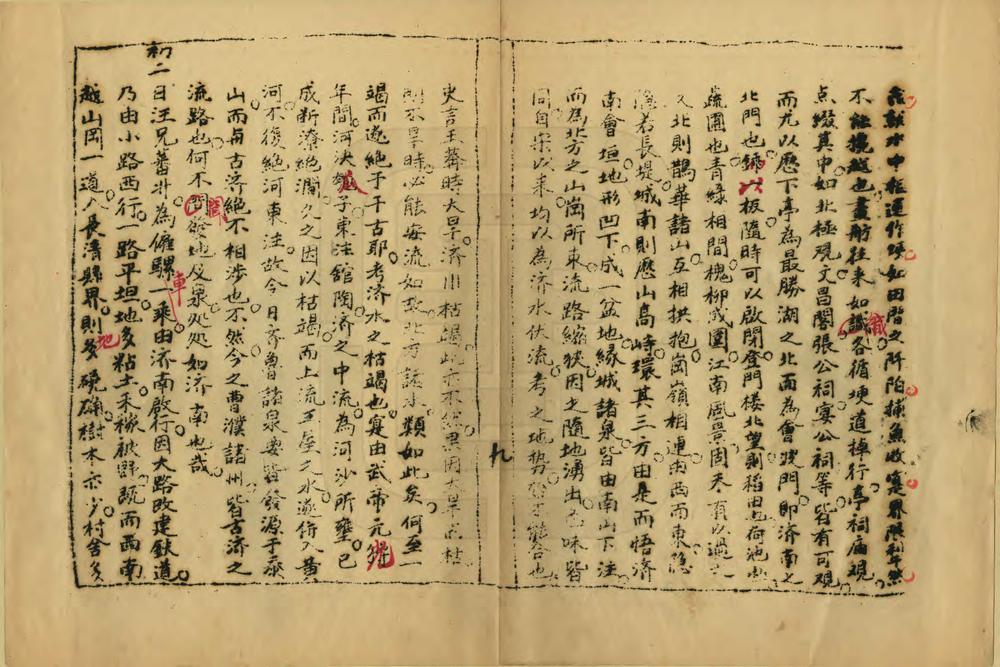 水中櫃運作綆如田陌之阡陌捕魚收菱界限判然
不能攙越也畫舫往來如織各循埂道棹行亭祠廟觀
点綴其中如北極观文昌閣張公祠宴公祠等皆有可观
而尤以歷下亭為最勝湖之北面為會波門即济南之
北門也鍊以板隨時可以啟閉登門楼北望則稻田也荷池也
蔬圃也青綠相間槐柳成圍江南風景固無有以過之
又北則鵲華諸山互相拱抱崗嶺相連由西而東隐
者長堤城南則歷山高峙環其三方由是而悟济
南會垣地形凹下成一盆地緣城諸泉皆由南山下注
而為北方之山崗所束流路縮狹因之隨地湧出味皆
同自宋以来均以為济水伏流考之地勢能合也
九
史言王莽時大旱济川枯竭此亦不然果因大旱而枯
不旱時必能安流如故北方諸水類如此矣何至一
竭而遂絕于千古耶考济水之枯竭也寔由武帝元光
年間河决瓠子東注館陶济之中流為河沙所壅已
成断潦絕澗久之因以枯竭而上流五壑之水遂併入黄
河不復絕河東注故今日齐魯諸泉安皆發源于泰
山而与古济絕不相涉也不然今之曹濮諸州皆古济之
流路也何不聞發地及泉处处如济南也哉
初二日汪兄蕃升為僱騾車一乘由济南啟行因大路改建鉄道
乃由小路西行一路平坦地多粘土禾稼被野既而西南
越山岡一道入長清縣界則地多磽确樹木亦少村舍多